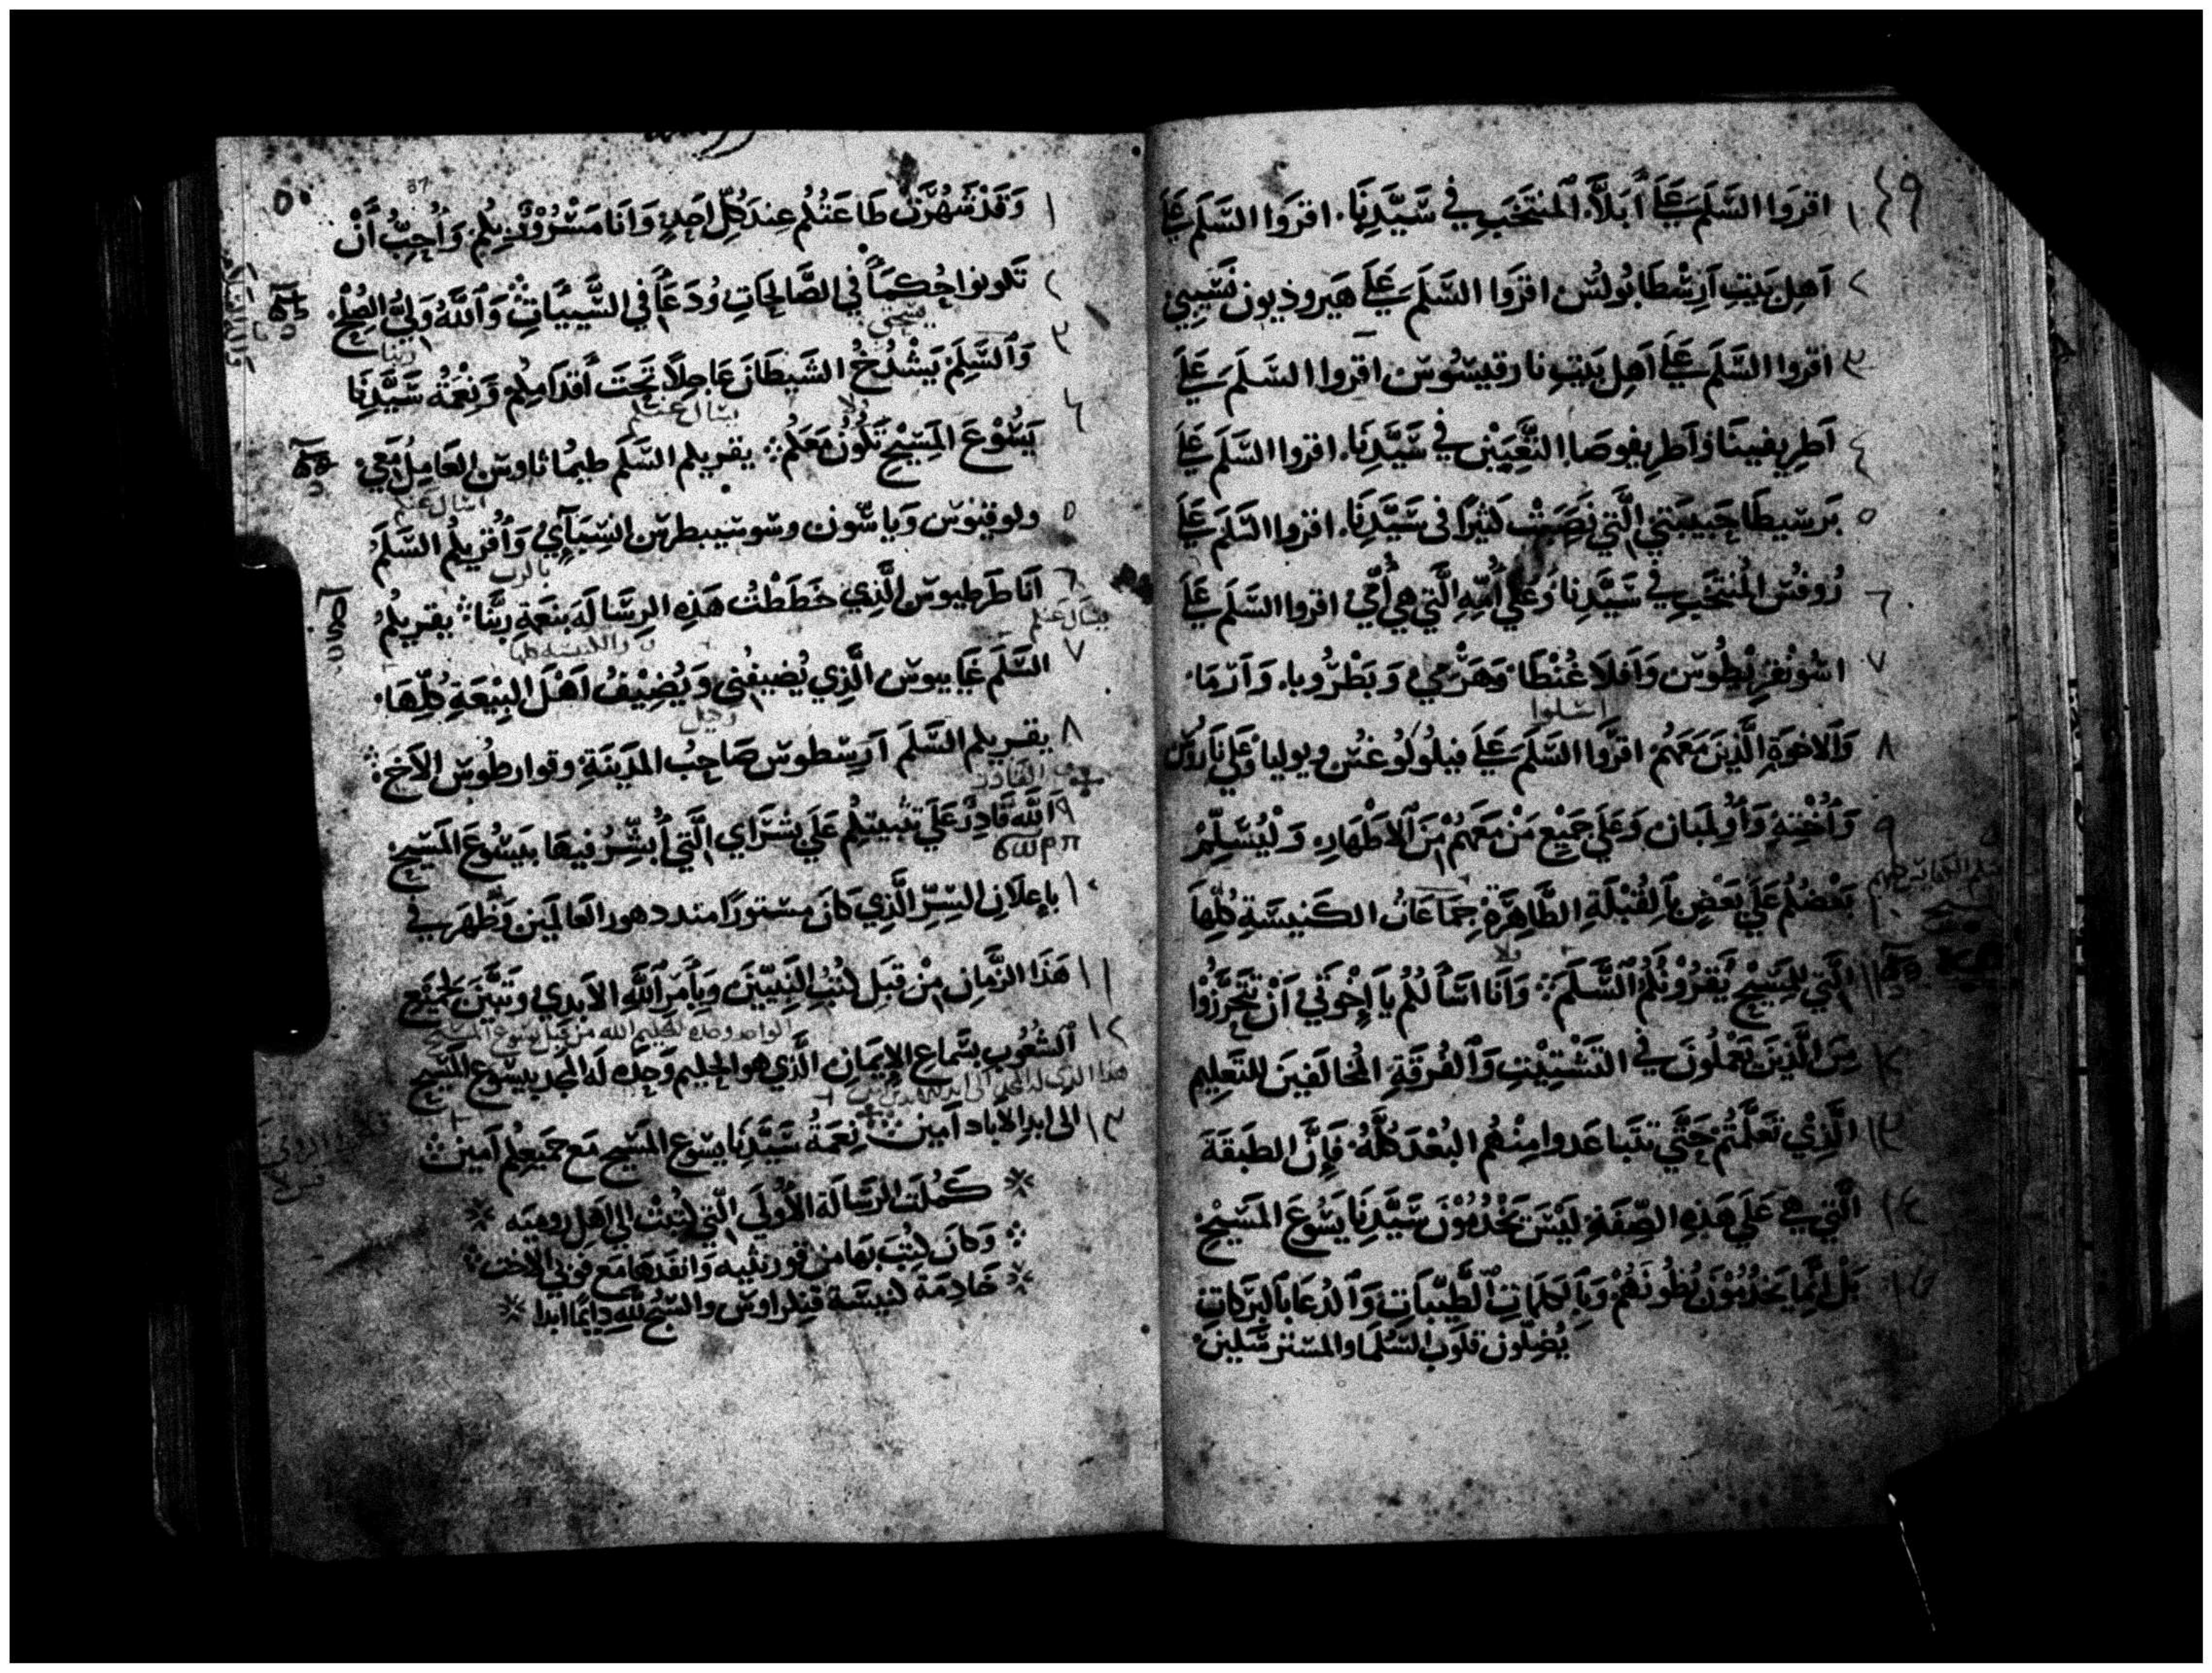 ٤٩
١ اقروا السَّلَم عَلَى أَبَلَّا المنتَخَبِ في سَيِّدِنَا. اقروا السَّلَم عَلَى
٢ اَهِل بَيتِ اَرِسْطَابُولُس اقرَوا السَّلَم عَلَى هَيروذيون نَسِيبِي
٣ اقروا السَّلَم عَلَى اَهِل بَيتِ نارقيسّوس اقروا السَّلَم عَلَى
٤ اَطرِيفينَا وَاَطريفوصَا. التَّعِبَتْينِ في سَيِّدِنَا. اقروا السَّلَم عَلَى
٥ بَرسِيطَا حَبيبَتي الَّتي نَصَبَتْ كَثيرًا فى سَيِّدِنَا. اقروا السَّلَم عَلَى
٦ رُوفُس المُنتَخَبِ في سَيِّدِنا وَعَلَى أُمِّهِ الَّتي هِي أُمّي اقروا السَّلَم عَلَى
٧ اسُونقرِيطُوس وَاَفلَاغُنْطَا. وَهَرْمَي وَبَطْرُوبا. وَاَرْمَا.
اسلوا
٨ وَالاخوَةِ الَّذِينَ مَعَهُم اقرَوا السَّلَم عَلَى فيلُولُوغُس ويوليا وعَلَى نَارَوُس
٩ وَاُختِهِ وَاُولِمبَان وَعَلَى جَميْعِ مَنْ مَعَهُمْ مِنَ الاَطْهَارِ. وَلْيُسَلِّمْ
١٠ بَعْضُكُم عَلَى بَعْضٍ بِالقُبْلَةِ الطَّاهِرَةِ. جَمَاعَاتُ الكَنيسَةِ كُلِّهَا
١١ الَّتي لِلمَسِيْحِ يَقرُوْنَكُمُ السَّلَمَ. وَاَنَا اسَألُكُم يَا إِخوَتي اَنْ تَتَحَرَّزُوْا
١٢ مِنَ الَّذِينَ يَعْمَلُونَ في التَشْتِيْتِ وَالفُرقَةِ المُخالَفينَ للتَعلِيم
١٣ الَّذِيْ تَعَلَّمْتُمْ حَتَّى تتَباعَدوا مِنْهُمُ البُعْدَ كُلَّهُ. فَإِنَّ الطَبَقَةَ
١٤ الَّتي هِي عَلَى هَذِهِ الصِّفَةِ لَيْسَ يَخْدُمُوْنَ سَيِّدِنَا يَسُوعَ المَسِيْحِ.
١٥ بَلْ اِنَّما يَخدُمُوْنَ بُطُونَهُمْ وَبِالكَلِمَاتِ الطَيِّبَاتِ وَالدُعَا بِالبَرَكَاتِ
يُضِلّون قلوبَ السُلَمَا والمسترسَلين.
٥٠
١ وَقَدْ شُهِرَتْ طَاعَتُكُم عِندَ كُلِّ اَحَدٍ وَاَنَا مَسْرُوْرٌ بِكُم وَاُحِبُّ اَنْ
٢ تَكونوا حُكَمَأَ في الصَّالِحَاتِ وُدَعَأَ في السَّيِيَاتِ. وَاللَّهُ وَلِيُّ الصُلْحِ.
٣ وَالسَّلِمَ يَشْدُخُ الشَيطَانَ عَاجِلاً تَحتَ أَقدَامِكُم وَنِعْمَةُ سَيِّدِنَا
ربنا
٤ يَسُوْعَ المَسِيْحِ تَكُونُ مَعَكُم. يقريكم السَّلَم طيمُاثاوس العَامِل مَعي
٥ ولوقيوس وَيَاسّون وسوسيبطرس انسِبَآيُ وَأُقريكُم السَّلَم
بالرب
٦ اَنَا طَرطيوس الَّذِي خَطَطْتُ هَذِهِ الرِسَالَه بنعمَةِ رَبِّنا. يقريكُم
٧ السَّلَمَ غَاييوس الَّذِي يُضيفُني وَيُضِيْفُ اَهْلَ البِيْعَةِ كُلِّهَا.
٨ يقريكم السَّلَمَ اَرِسطوس صَاحِبُ المَدِينَةِ. وقوارطُوس الاَخِ
القادر
٩ اَللَّه قَادِرٌ عَلَى تثبيتِكُم عَلَى بشْرَاي الَّتي اُبَشِّرُ فيهَا بيَسُوعَ المَسِيْحِ
١٠ بإعلَانِ السِرِّ الَّذِي كَانَ مستورًا منذ دهور العَالمِين وَظَهَرَ في
١١ هَذَا الزَّمَانِ مِنْ قِبَل كُتُبِ النَبِيّينَ وَبِأَمرِ اللَّهِ الاَبدي وَتَبَيَّنَ لجَمِيْعِ
١٢ الشُعُوبِ بسَماعِ الاِيمَانِ الَّذي هو الحَكيم وَحدَه لَه المَجد بيسُوع المَسِيْح
١٣ الى ابدِ الاباد آمين. نِعمَةُ سَيِّدِنَا يسُوع المَسيح مَع جَميعِكُم آمين
كَمُلَت الرسَالَة الأُولَى الَّتي كُتِبَتْ الى اَهل روميَه
وَكَانَ كُتِبَ بهَا من قورنثيه وَانفَذهَا مَع فوني الاخت
خَادِمَة كنيسَة قنكراوس والسُبْح لله دايمًا ابدا